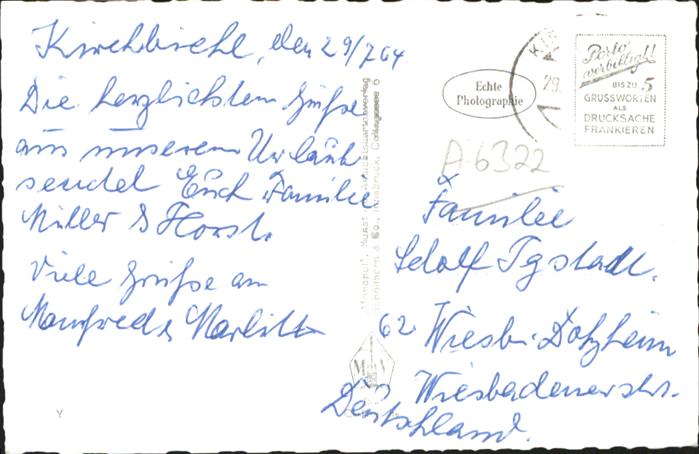 Kirchbichl, den 29/7 64
Die herzlichsten Grüße
aus unserem Urlaub
sendet Euch Familie
Müller & Horst.
Viele Grüße an
Manfred &
Echte
Photographie
Porto
verbilligt!
BIS ZU 5
GRUSSWORTEN
ALS
DRUCKSACHE
FRANKIEREN
29.
A-6322
Familie
Adolf
62 Wiesb. Dotzheim
Wiesbadenerstr.
Deutschland.
Y